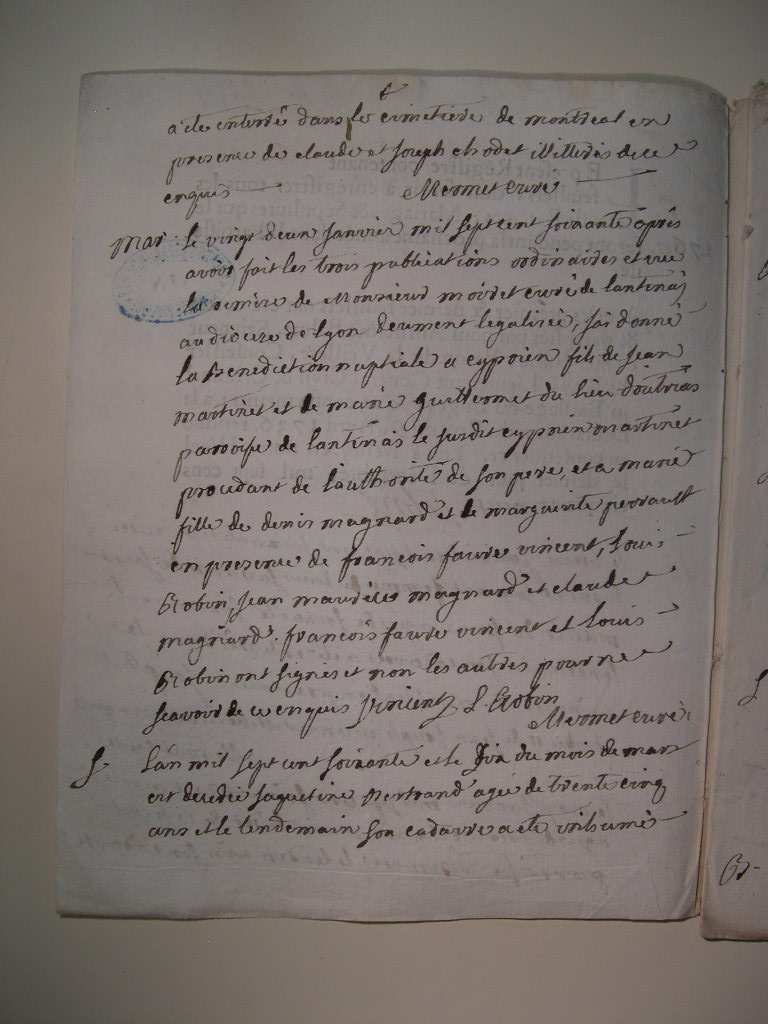 a ete enterré dans le cimetiere de montreal en
presence de claude et joseph chodet illiterés de ce
enquis Mermet curé
mar le vingt deux janvier mil sept cent soixante après
avoir fait les trois publications ordinaires et vue
la remise de Monsieur moiret curé de lantinaÿ
au diocese de lyon deument legalizée, j'ai donné
la Benediction nuptiale a cyprien fils de jean
martinet et de marie guillermet du lieu
paroisse de lantinaÿ le susdit cyprien martinet
procedant de l'authorité de son pere, et a marie
fille de denis magnard et de marguerite perrault
en presence de françois favre vincent, Louis
Robin, jean magnard et claude
magnard. françois favre vincent et louis
Robin ont signés et non les autres pour ne
scavoir de ce enquis Vincent L. Robin
Mermet curé
S. L'an mil sept cent soixante et le six du mois de mars
est decedée jaquetine Bertrand agée de trente cinq
ans et le lendemain son cadavre a ete inhumé
B-